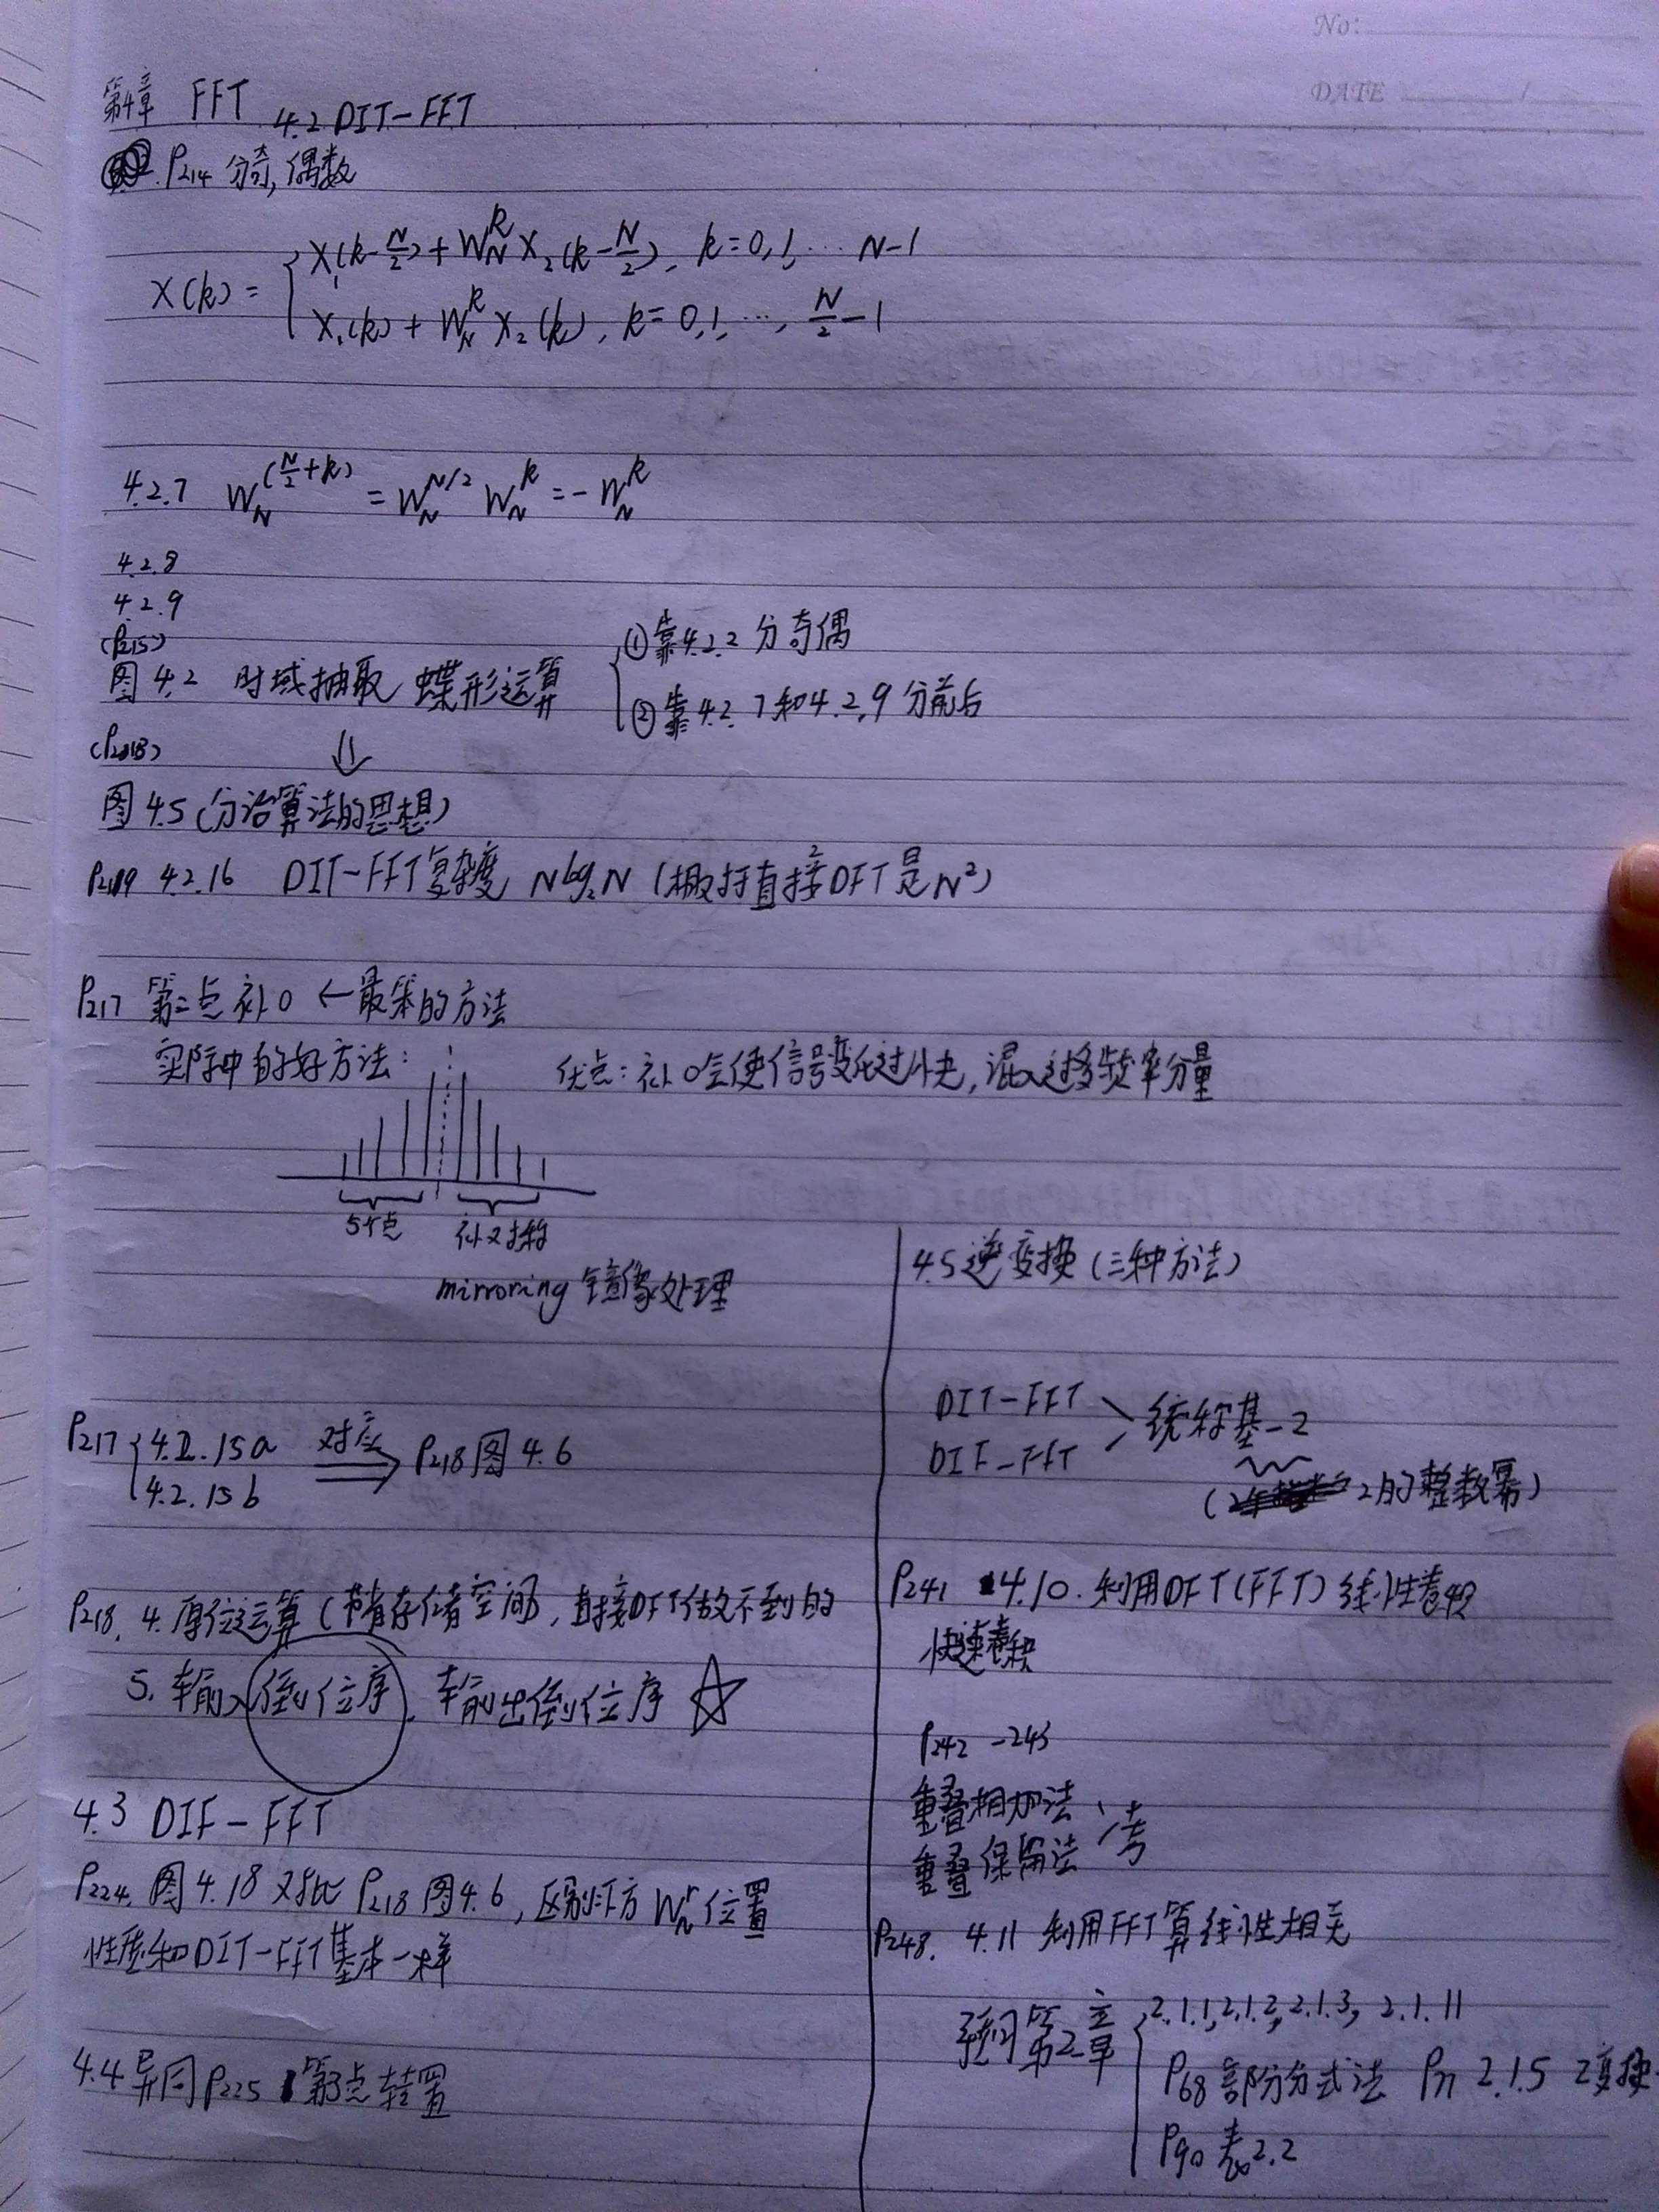 No:
DATE
第4章 FFT 4.2 DIT-FFT
P214 分奇,偶数
X(k) = { X₁(k-N/2) + W_N^k X₂(k-N/2), k=0,1,…N-1
X₁(k) + W_N^k X₂(k), k=0,1,…, N/2-1
4.2.7 W_N^(N/2+k) = W_N^(N/2) W_N^k = -W_N^k
4.2.8
4.2.9
(P215)
图4.2 时域抽取 蝶形运算
①靠4.2.2 分奇偶
②靠4.2.7和4.2.9 分前后
(P218)
⇓
图4.5(分治算法的思想)
P219 4.2.16 DIT-FFT复杂度 Nlog₂N (直接DFT是N²)
P217 第二点 补0 ← 最笨的方法
实际中的好方法:
优点: 补0会使信号变化过快,混入过多频率分量
5个点 补对称
mirroring 镜像处理
P217 { 4.2.15a
4.2.15b
对应 ⇒ P218 图4.6
P218. 4.原位运算(节省存储空间), 直接DFT做不到的
5. 输入倒位序, 输出倒位序 ☆
4.3 DIF-FFT
P224. 图4.18 对比 P218 图4.6, 区别下方 W_N^r 位置
性质和DIT-FFT基本一样
4.4 异同 P225 第3点 转置
4.5 逆变换 (三种方法)
DIT-FFT
DIF-FFT
统称基-2
(2的整数幂)
P241 4.10. 利用DFT(FFT) 线性卷积
快速卷积
P242-243
重叠相加法
重叠保留法
考
P248. 4.11 利用FFT算线性相关
第2章 { 2.1.1, 2.1.2, 2.1.3, 2.1.11
P68 部分分式法 P71 2.1.5 Z变换
P90 表2.2